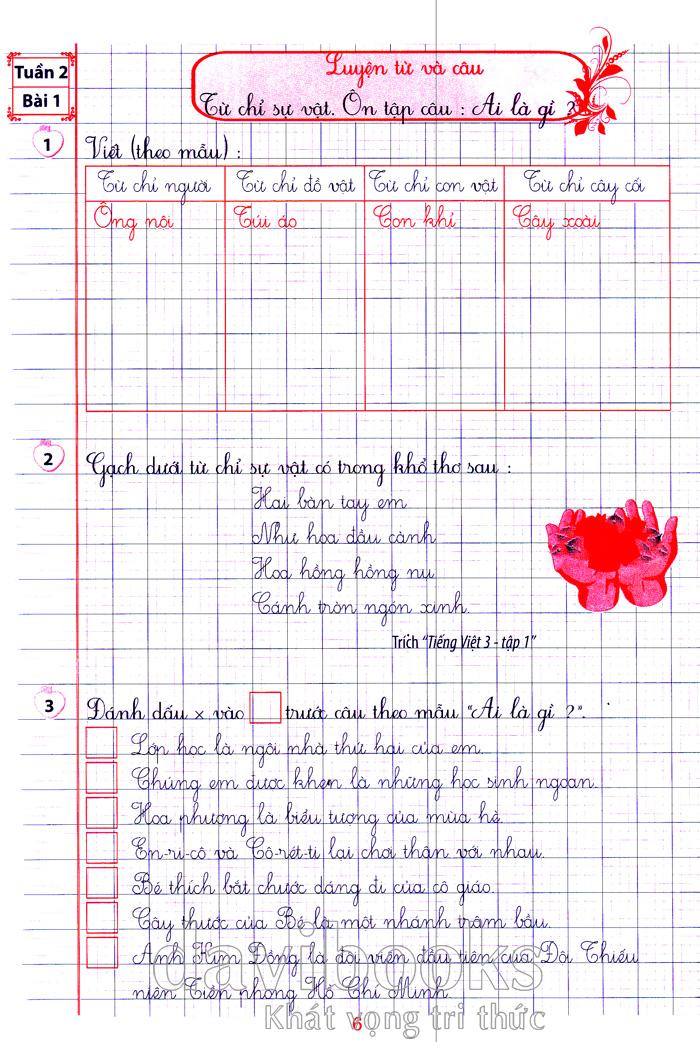 Tuần 2
Bài 1
Luyện từ và câu
Từ chỉ sự vật. Ôn tập câu : Ai là gì ?
1
Viết (theo mẫu) :
Từ chỉ người Từ chỉ đồ vật Từ chỉ con vật Từ chỉ cây cối
Ông nội Túi áo Con khỉ Cây xoài
2
Gạch dưới từ chỉ sự vật có trong khổ thơ sau :
Hai bàn tay em
Như hoa đầu cành
Hoa hồng hồng nụ
Cánh tròn ngón xinh.
Trích "Tiếng Việt 3 - tập 1"
3
Đánh dấu x vào trước câu theo mẫu "Ai là gì ?".
Lớp học là ngôi nhà thứ hai của em.
Chúng em được khen là những học sinh ngoan.
Hoa phượng là biểu tượng của mùa hè.
En-ri-cô và Cô-rét-ti lại chơi thân với nhau.
Bé thích bắt chước dáng đi của cô giáo.
Cây thước của Bé là một nhánh trâm bầu.
Anh Kim Đồng là đội viên đầu tiên của Đội Thiếu
niên Tiền phong Hồ Chí Minh
davibooks
Khát vọng tri thức
6